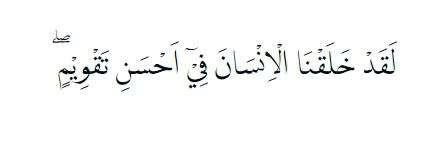 لَقَدْ خَلَقْنَا الْاِنْسَانَ فِيْٓ اَحْسَنِ تَقْوِيْمٍۖ